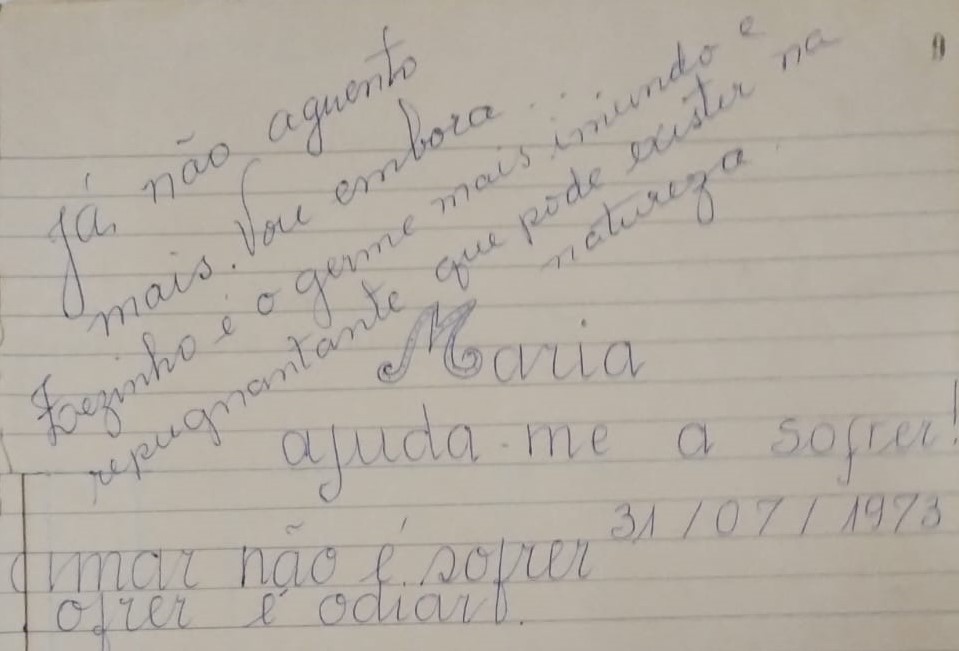 Já não aguento
mais. Vou embora...
Joezinho é o germe mais imundo e
repugnantante que pode existir na
natureza.
Maria
ajuda-me a sofrer!
31/07/1973
mar não é sofrer
ofrer é odiar.